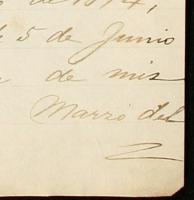 de 1874,
5 de Junio
de mis
Marzo del